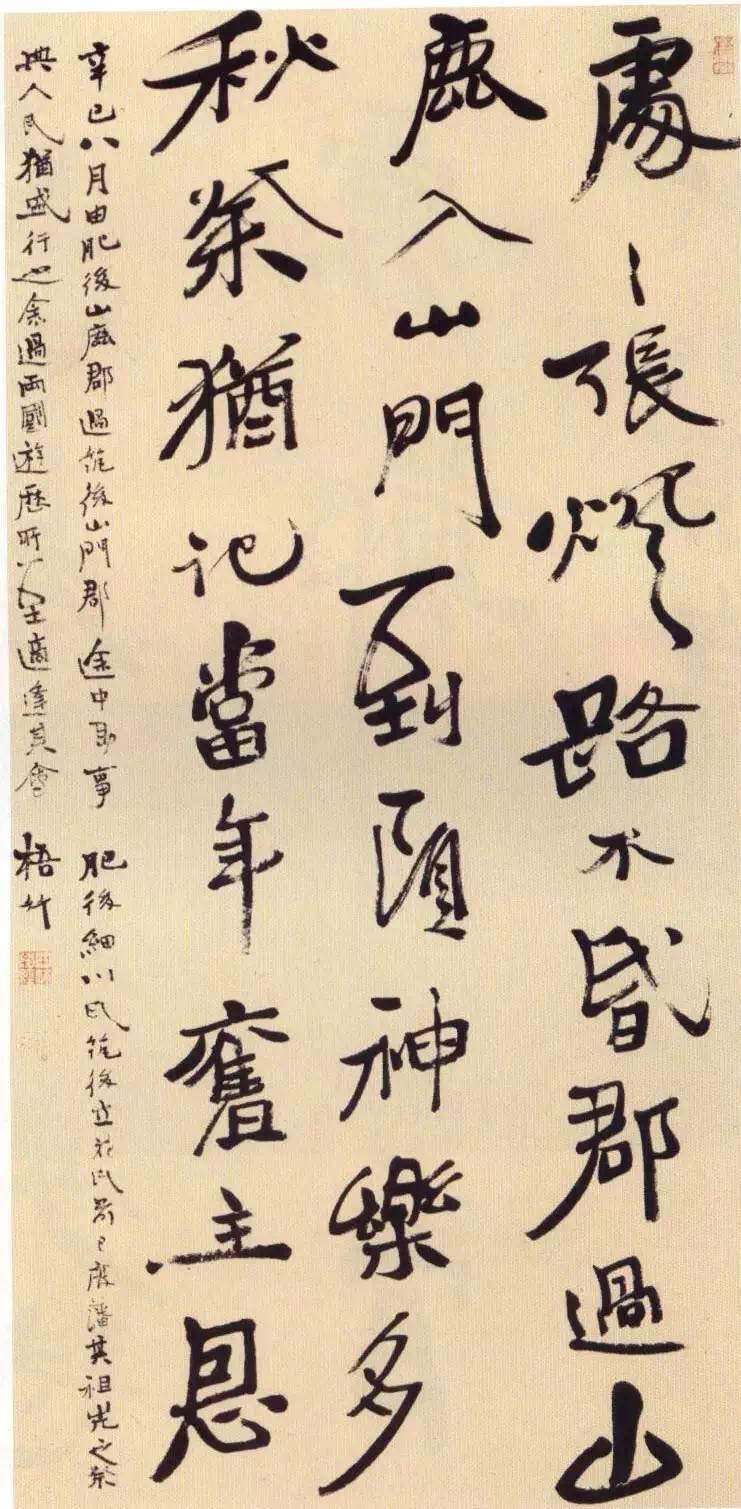 處〻張燈路不昏郡過山
鹿入山門到頭神樂多
秋祭猶記當年舊主恩
辛巳八月由肥後山鹿郡過筑後山門郡途中即事　肥後細川氏筑後立花氏前已廢藩其祖先之祭
典人民猶盛行也余過兩國遊歷所至適逢其會　梧竹